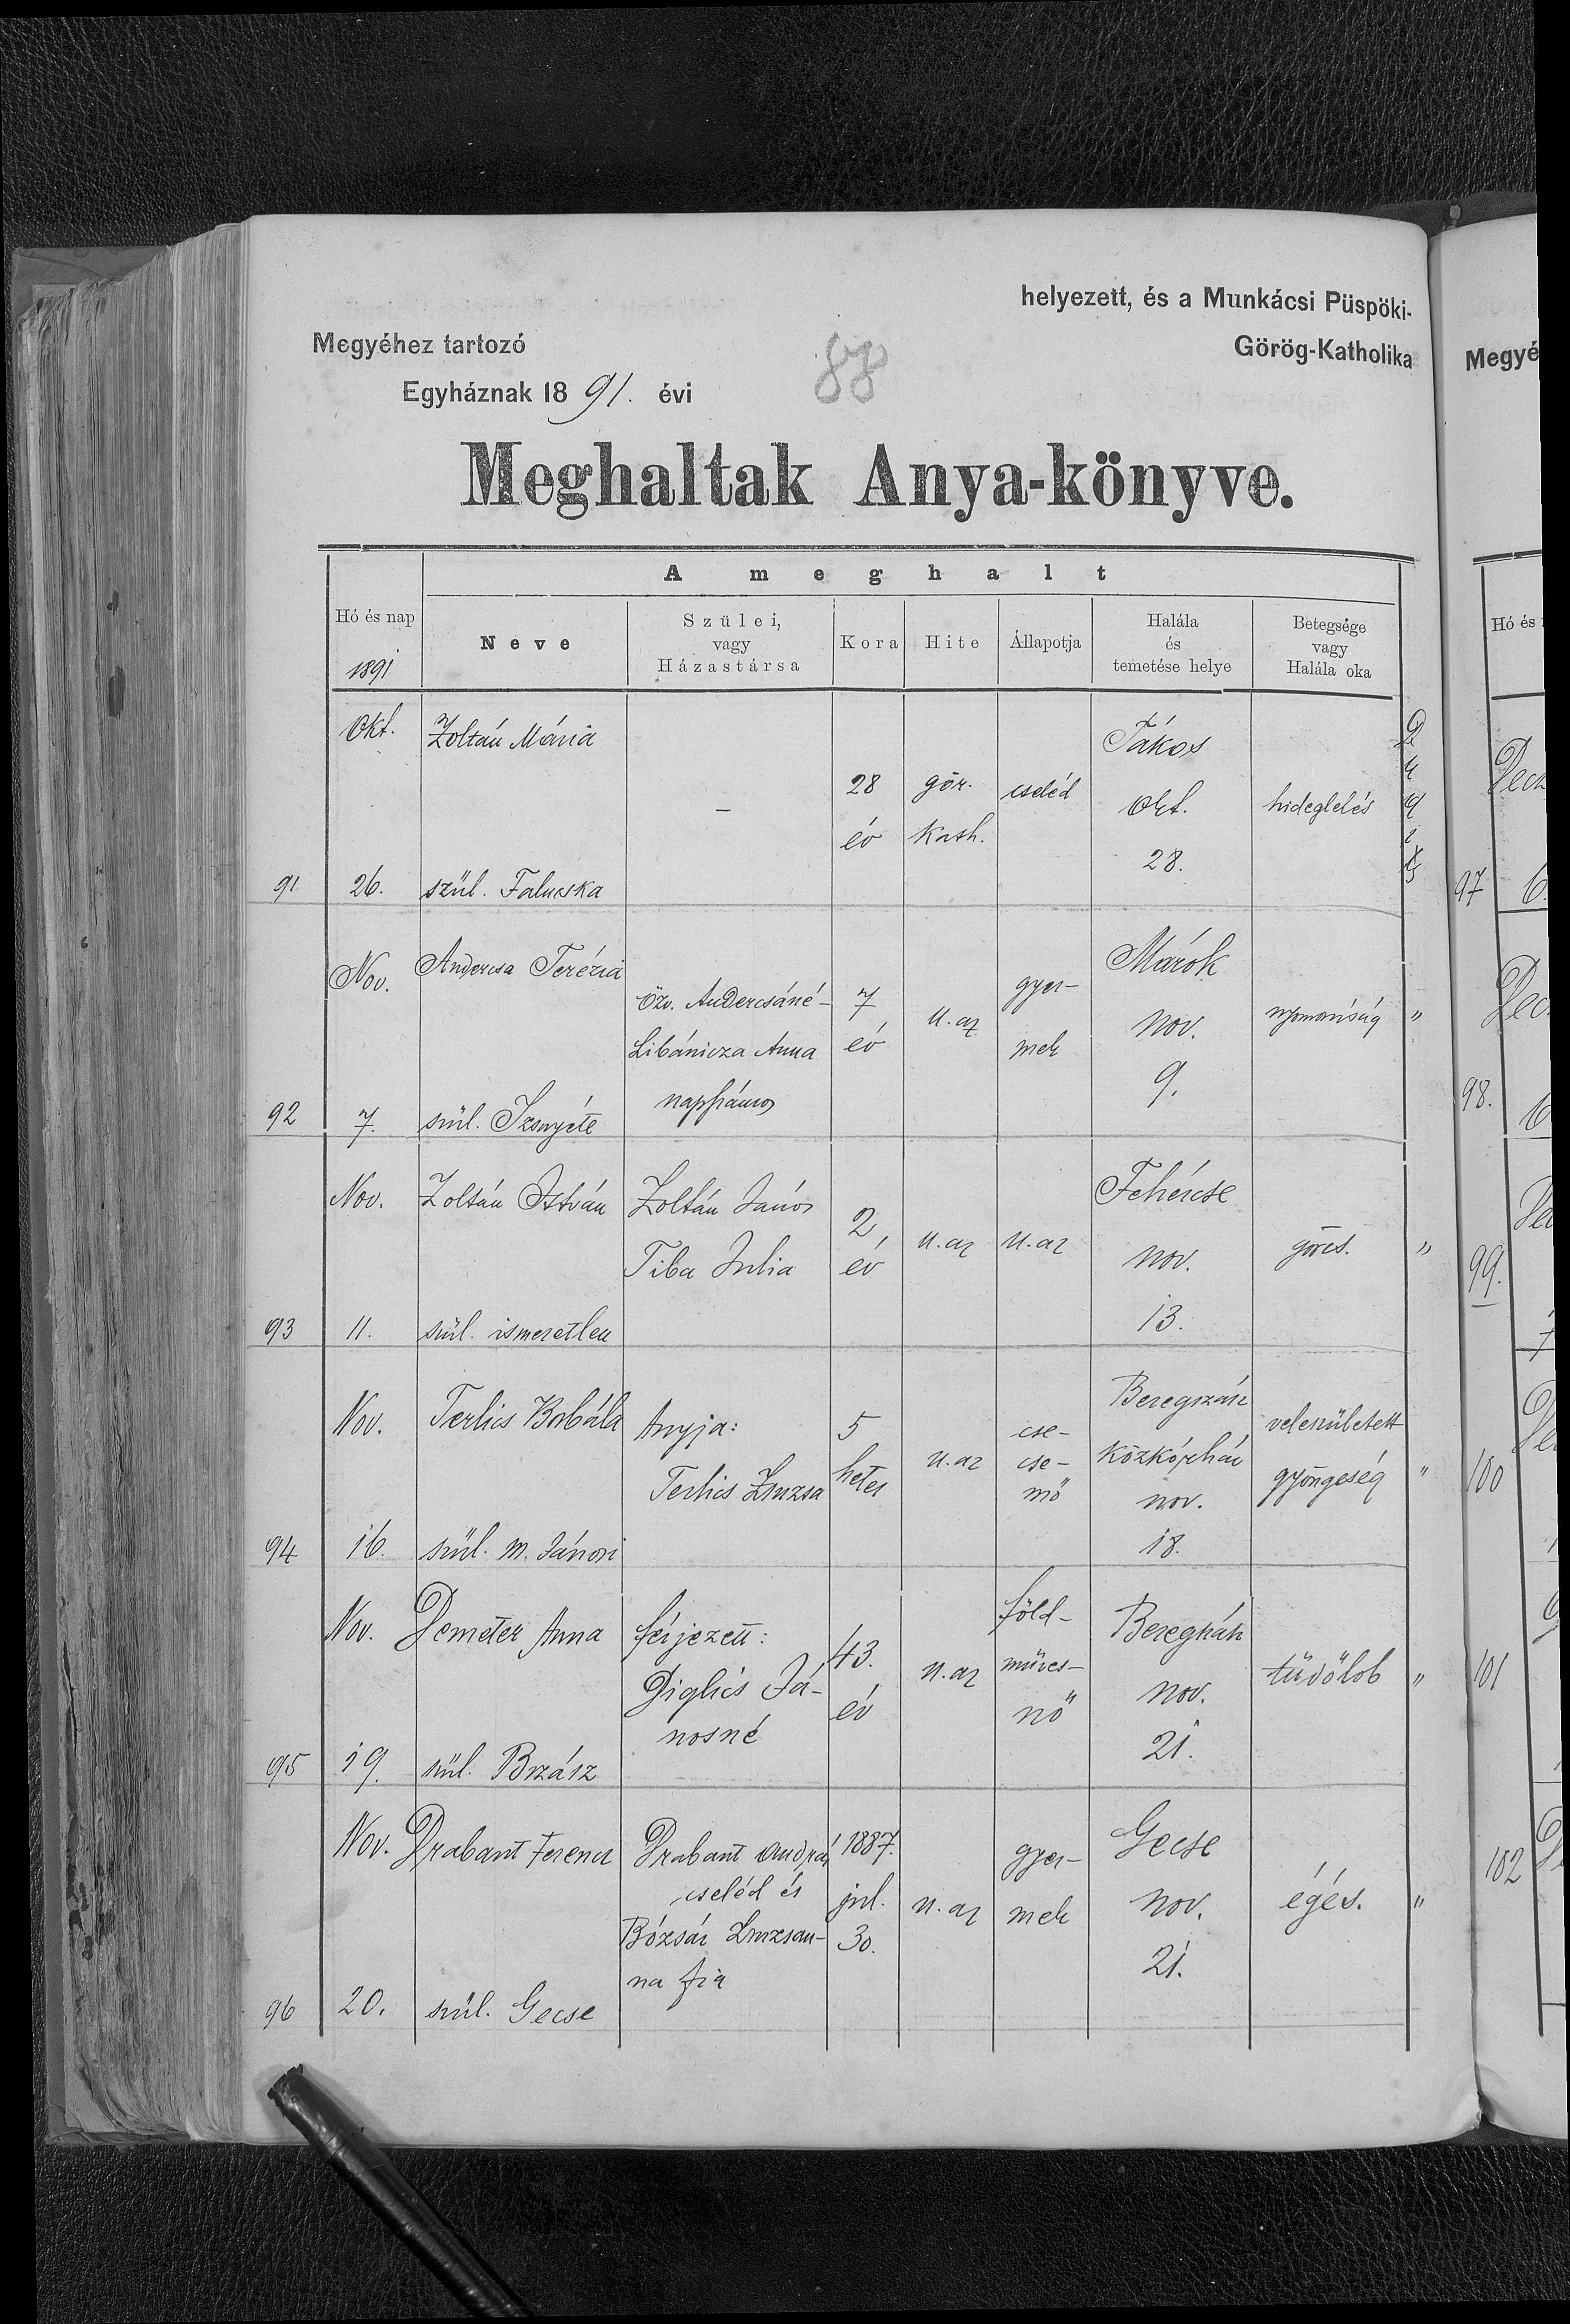 helyezett, és a Munkácsi Püspöki-
Megyéhez tartozó
Görög-Katholika
Egyháznak 1891. évi
88
Meghaltak Anya-könyve.
A meghalt
Hó és nap
1891
Neve
Szülei,
vagy
Házastársa
Kora
Hite
Állapotja
Halála
és
temetése helye
Betegsége
vagy
Halála oka
91
Okt.
26.
Zoltán Mária
szül. Falucska
—
28
év
gör.
kath.
cseléd
Tákos
Okt.
28.
hideglelés
92
Nov.
7.
Andercsa Terézia
szül. Izsnyéte
özv. Andercsáné-
Libánicza Anna
napszámos
7
év
u. az
gyer-
mek
Márok
nov.
9.
nyomorúság
"
93
Nov.
11.
Zoltán István
szül. ismeretlen
Zoltán János
Tiba Julia
2
év
u. az
u. az
Fehércse
nov.
13.
görcs.
"
94
Nov.
16.
Terlics Borbála
szül. M. Jánosi
Anyja:
Terlics Zsuzsa
5
hetes
u. az
cse-
cse-
mő
Beregszász
közkórház
nov.
18.
veleszületett
gyöngeség
"
95
Nov.
19.
Demeter Anna
szül.
férjezett:
Diglics Já-
nosné
43.
év
u. az
föld-
műves-
nő
Beregszász
nov.
21.
tüdőlob
"
96
Nov.
20.
Drabant Ferencz
szül. Gecse
Drabant András
cseléd és
Bózsár Zsuzsan-
na fia
1887.
jul.
30.
u. az
gyer-
mek
Gecse
nov.
21.
égés.
"
Megyé
Hó és
97
6.
98.
6
99.
7
100
101
102